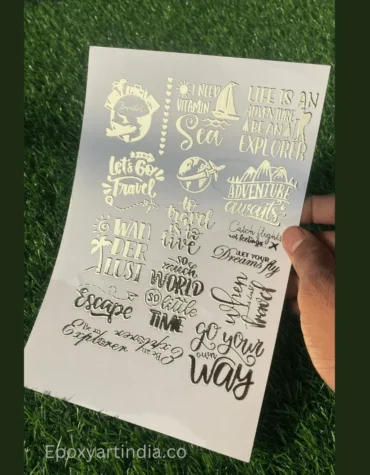 I NEED
VITAMIN
Sea
LIFE IS AN
ADVENTURE
BE AN
EXPLORER
Let's Go
Travel
ADVENTURE
awaits
to
travel
is to
live
WAN
DER
LUST
Catch flights
not feelings
LET YOUR
Dreams fly
so
much
WORLD
so little
TIME
when
travel
Escape
Explorer
go your
own
way
Epoxyartindia.co